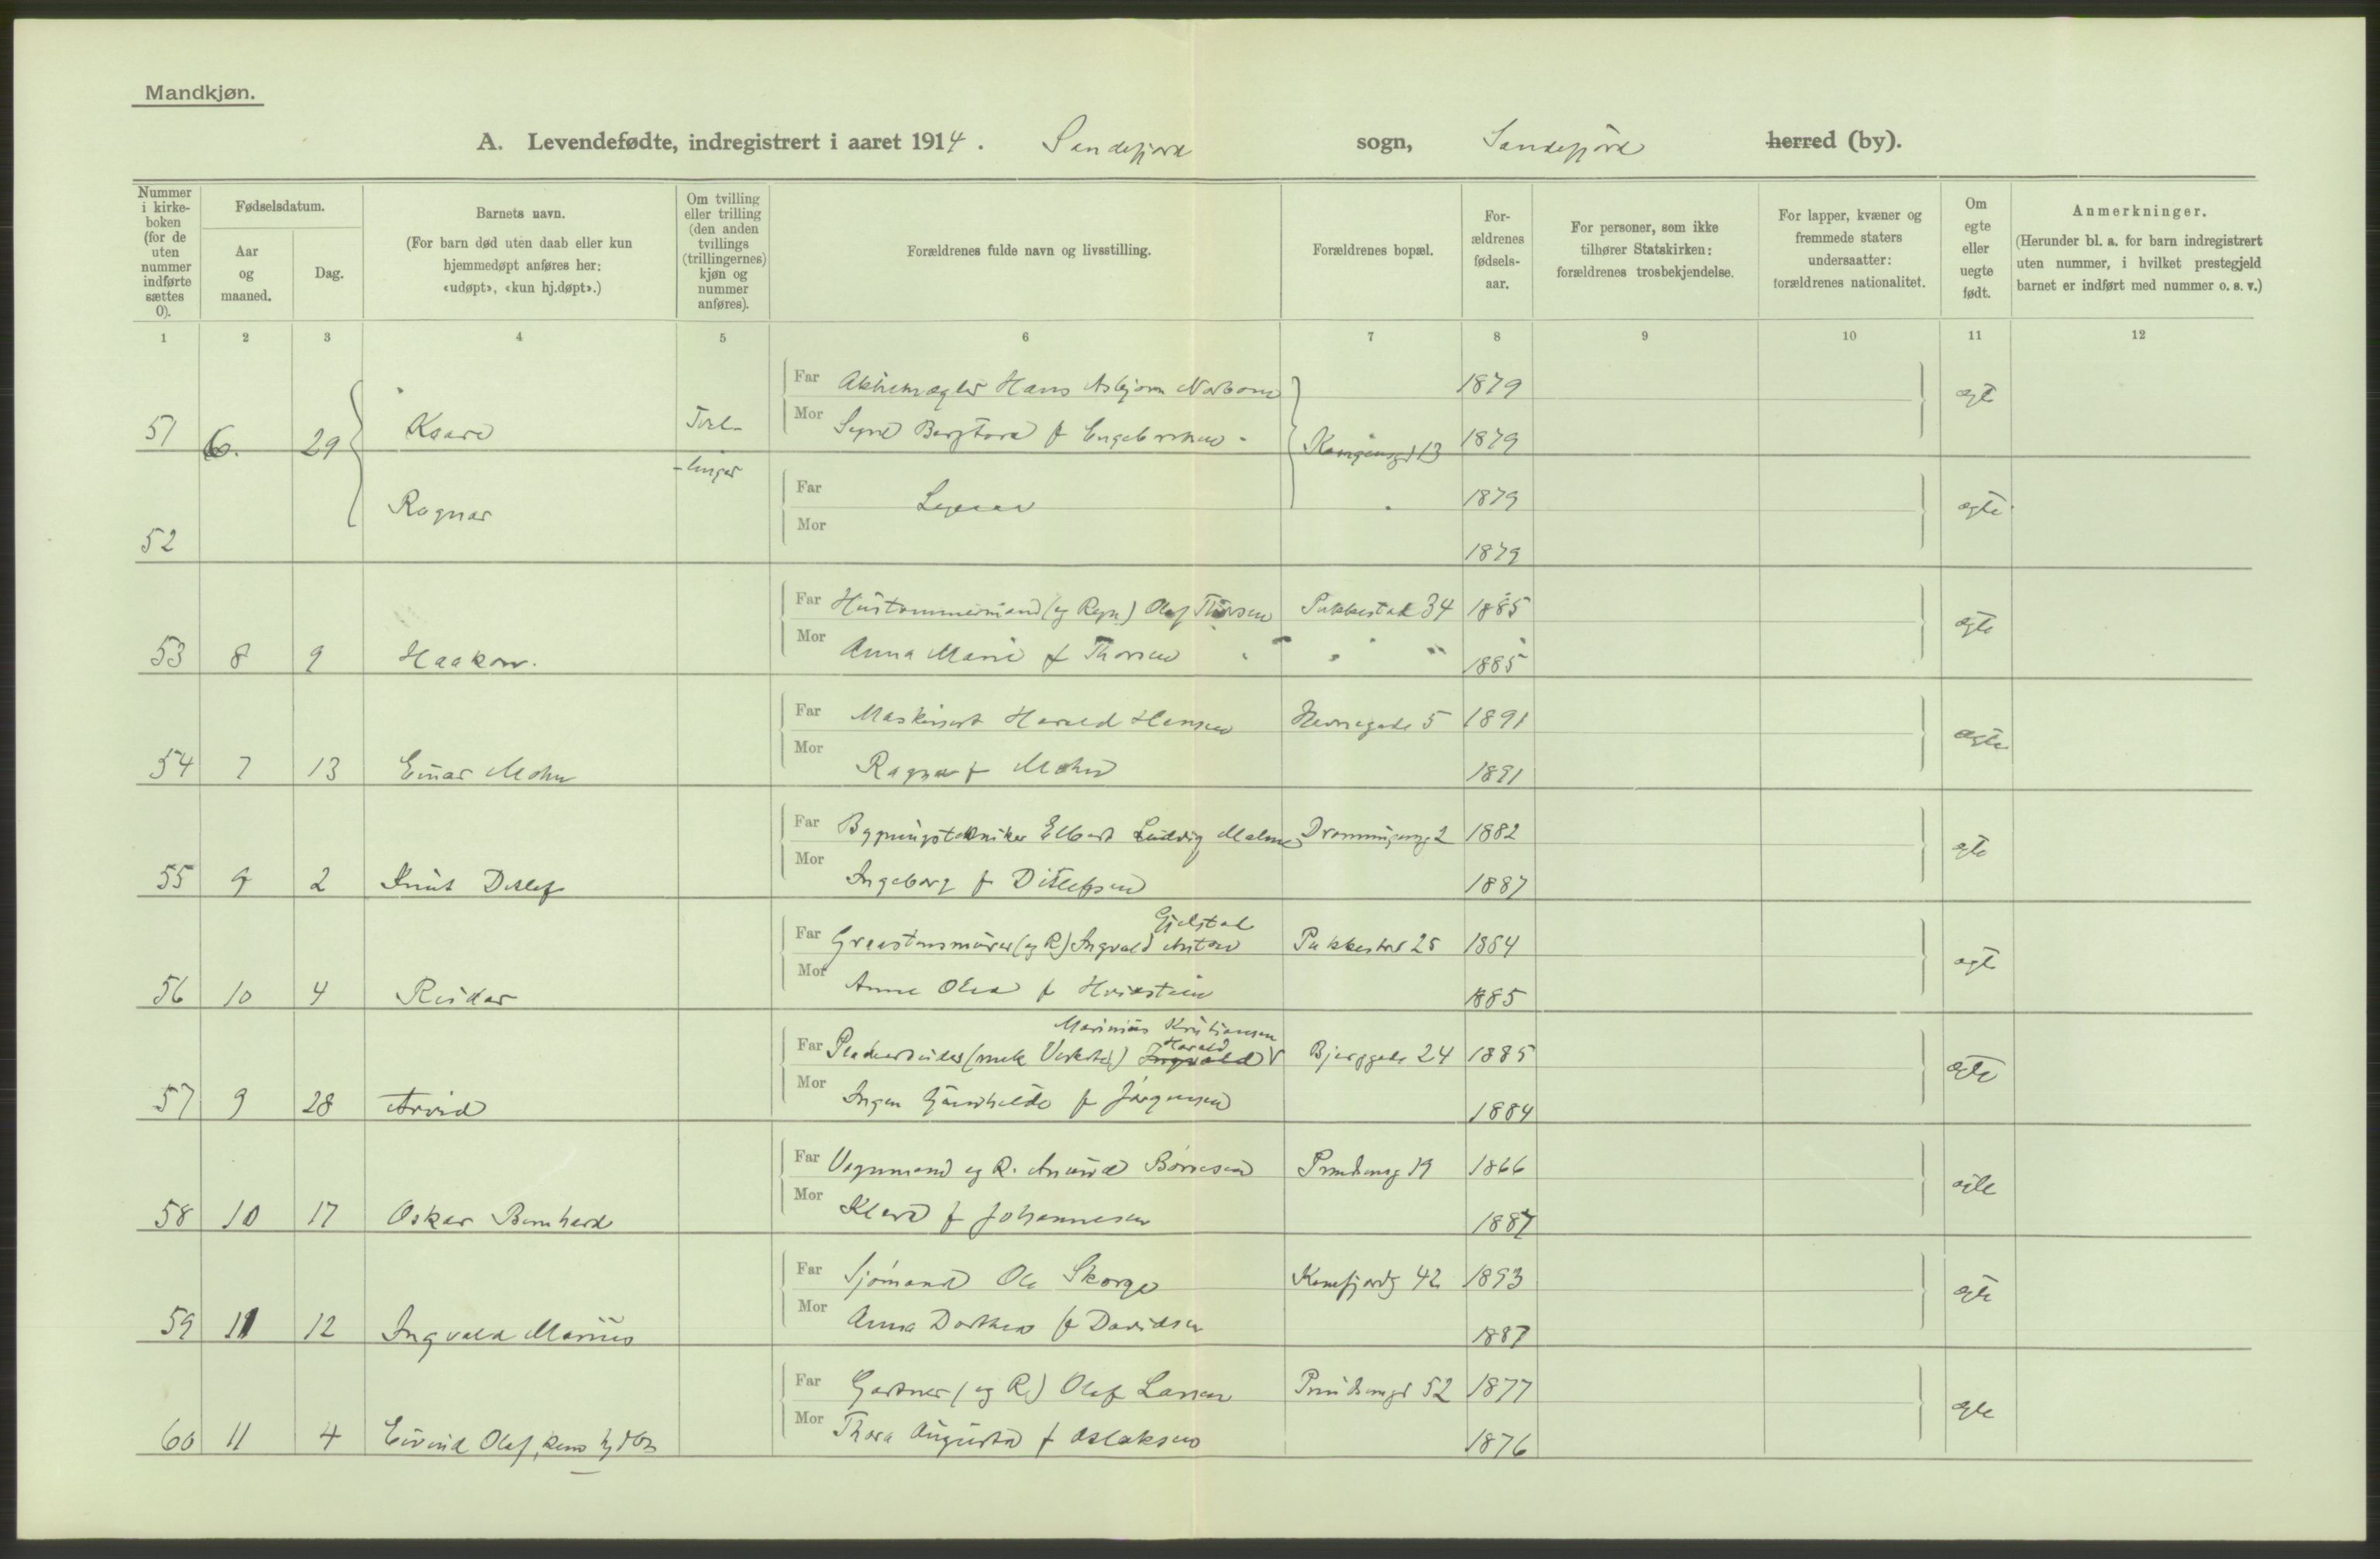 Mandkjøn.
A. Levendefødte, indregistrert i aaret 1914. Sandefjord sogn, Sandefjord herred (by).
Nummer i kirke-boken (for de uten nummer indførte sættes 0).
Fødselsdatum.
Aar og maaned.
Dag.
Barnets navn.
(For barn død uten daab eller kun hjemmedøpt anføres her: «udøpt», «kun hj.døpt».)
Om tvilling eller trilling (den anden tvillings (trillingernes) kjøn og nummer anføres).
Forældrenes fulde navn og livsstilling.
Forældrenes bopæl.
For-ældrenes fødsels-aar.
For personer, som ikke tilhører Statskirken: forældrenes trosbekjendelse.
For lapper, kvæner og fremmede staters undersaatter: forældrenes nationalitet.
Om egte eller uegte født.
Anmerkninger.
(Herunder bl. a. for barn indregistrert uten nummer, i hvilket prestegjeld barnet er indført med nummer o. s. v.)
1 2 3 4 5 6 7 8 9 10 11 12
Far Hans Asbjørn 1879
51 6. 29 Kaare Mor Signe f Kongensgd 13 1879 egte
-linger
Far 1879
52 Ragnar Mor 1879 egte
Far Hustømmermand (eg Regn) Olaf Thorsen Pukkestad 34 1885
53 8 9 Haakon. Mor Anna Marie f Thorsen " " " 1885 egte
Far Maskinist Harald Hansen 5 1891
54 7 13 Einar Mohn Mor Ragna f Mohn 1891 egte
Far Bygningstekniker Ludvig Malme 2 1882
55 9 2 Knut Ditlef Mor Ingeborg f Ditlefsen 1887 egte
Gjelstad
Far Graastensmurer (eg R) Ingvald Anton Pukkestad 25 1884
56 10 4 Reidar Mor Anne Olea f Hvidstein 1885 egte
Marinius Kristiansen
Harald
Far (mek Verksted) Ingvald Bjerggade 24 1885
57 9 28 Arvid Mor Gunhilde f Jørgensen 1884 egte
Far Vognmand eg R. 19 1866
58 10 17 Oskar Bernhard Mor Klara f Johannesen 1887 egte
Far Sjømand Ole Skorge 42 1893
59 11 12 Ingvald Marius Mor Anna Dorthea f Davidsen 1887 egte
Far Gartner (eg R) Olaf Larsen 52 1877
60 11 4 Eivind Olaf, Mor Thora Augusta f Aslaksen 1876 egte